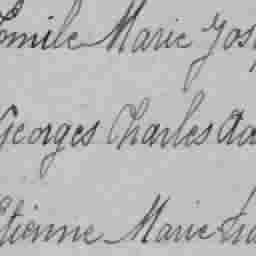 Emile Marie Jos
Georges Charles
Etienne Marie